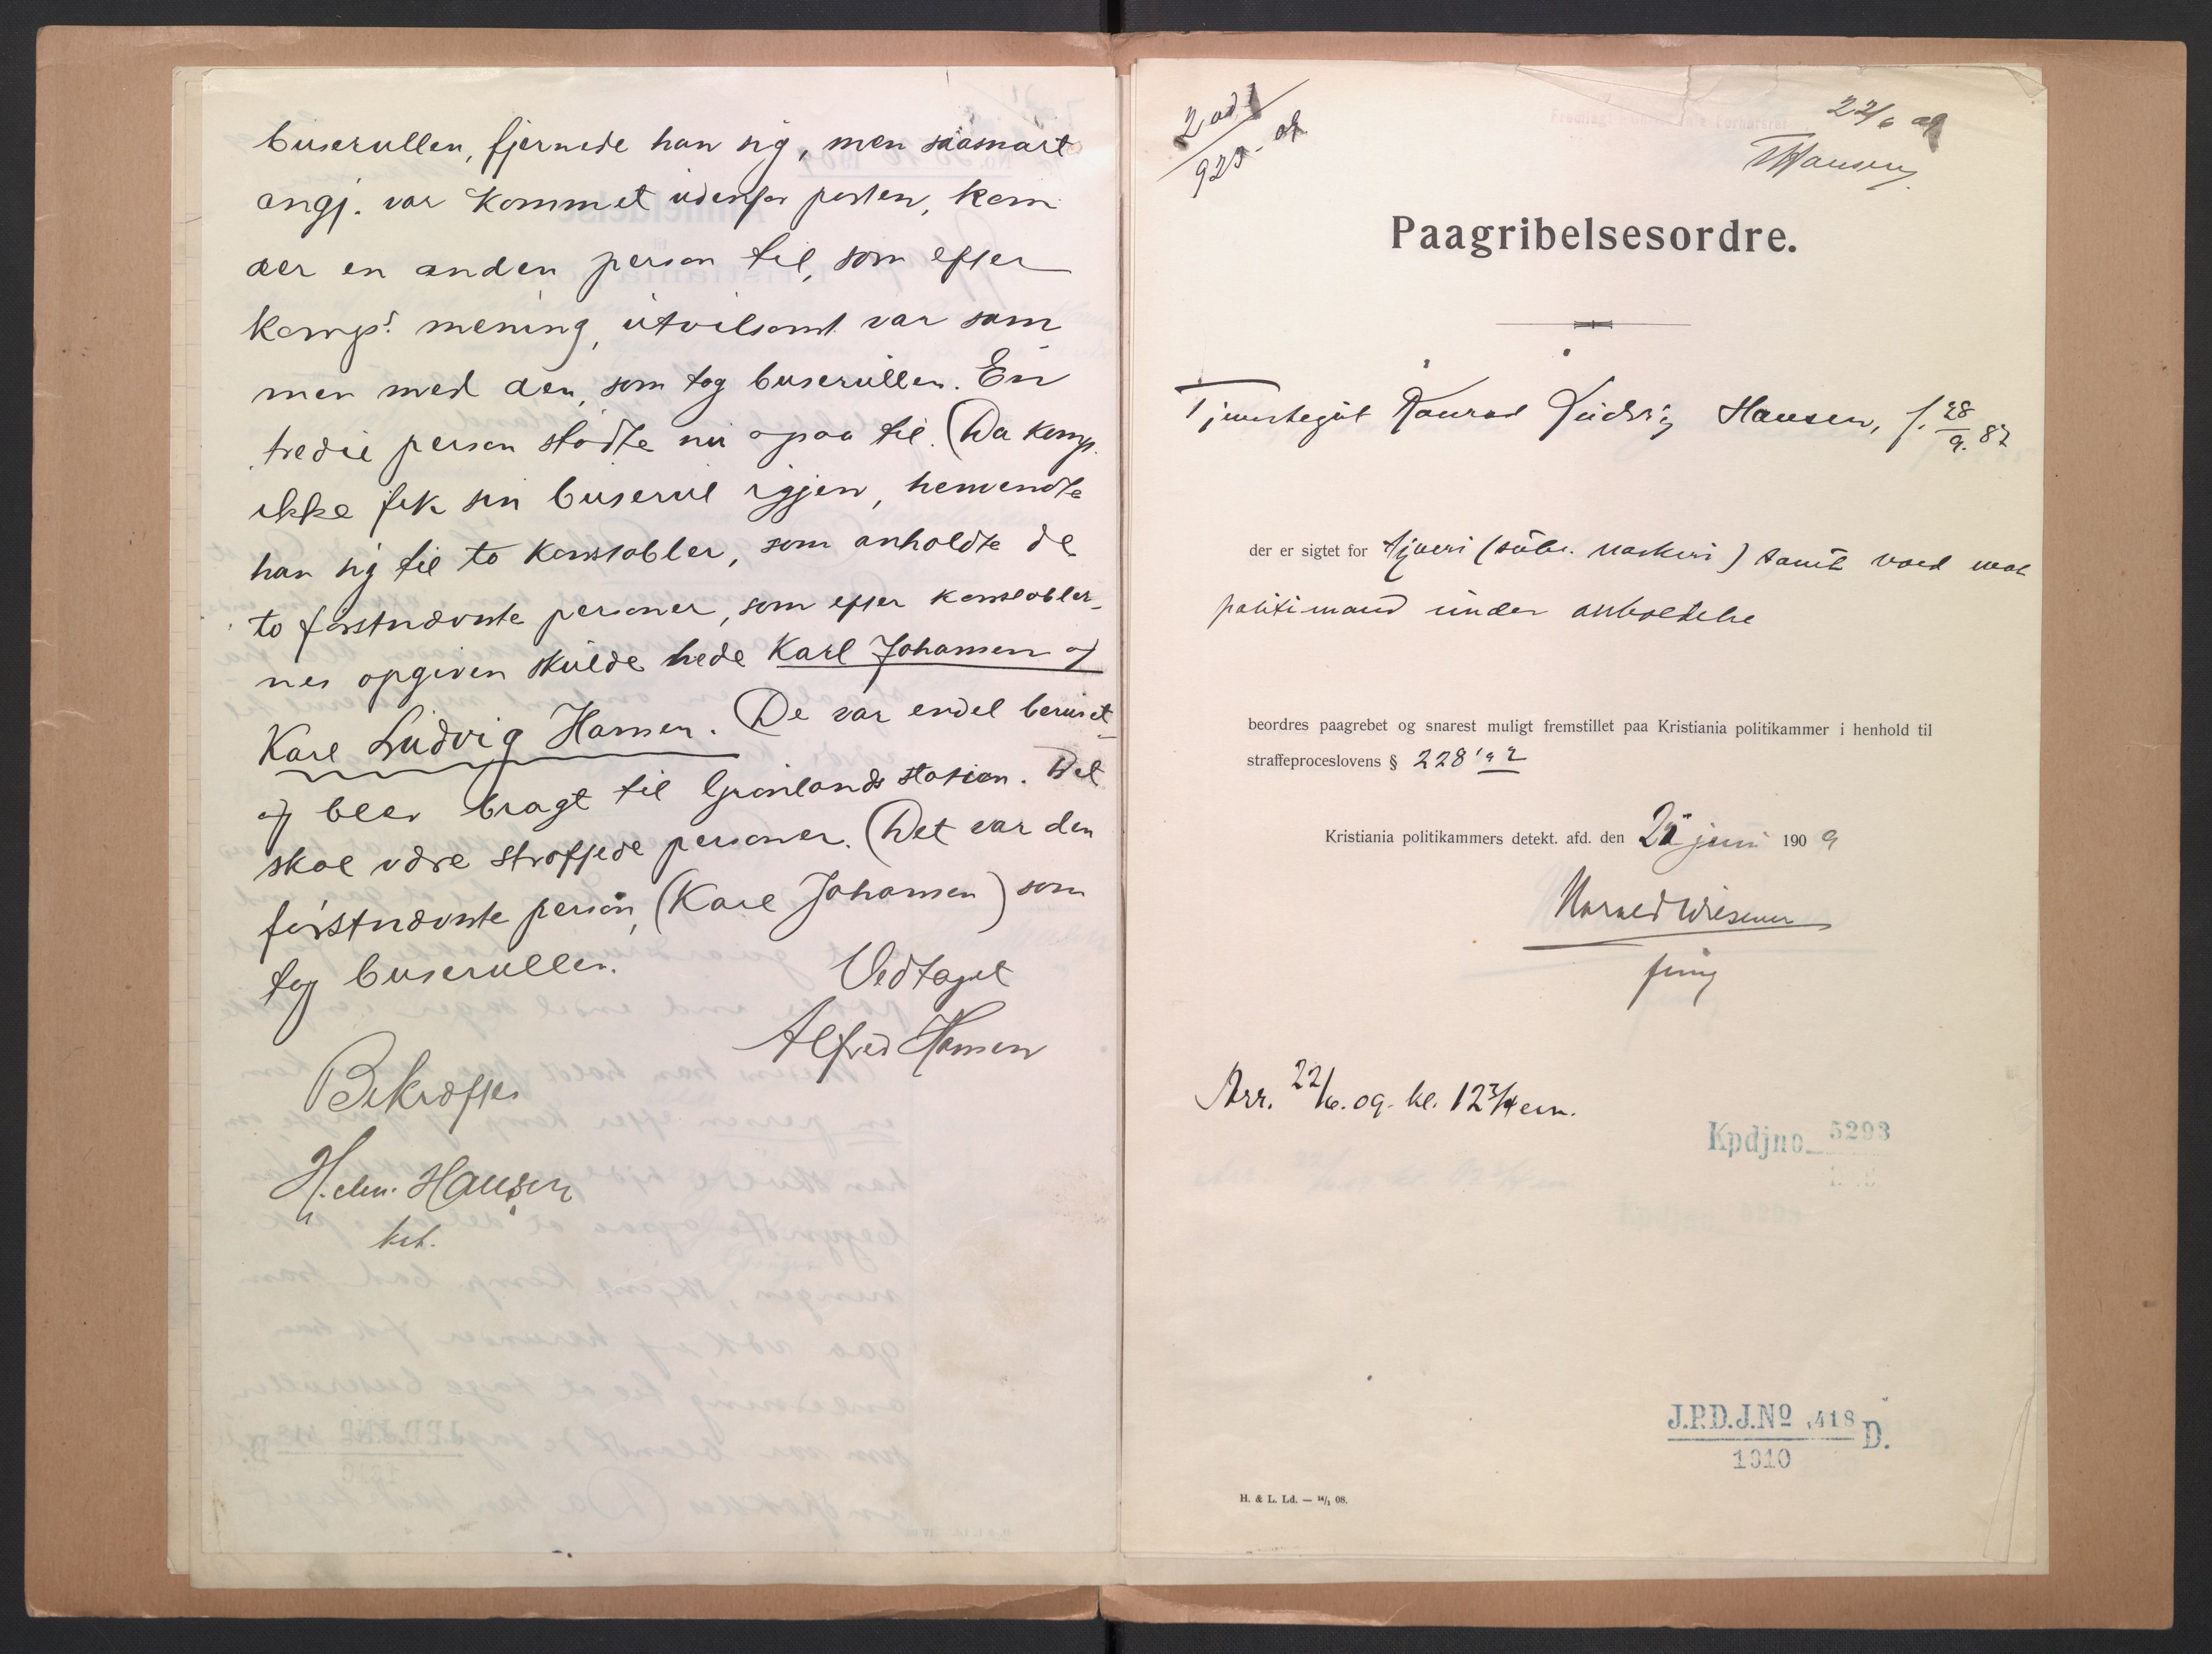 buserullen, fjernede han sig, men saasnart
angj. var kommet udenfor porten, kom
der en anden person til, som efter
komp's mening, utvilsomt var sam
men med den, som tog buserullen. En
tredie person stødte nu ogsaa til. (Da komp.
ikke fik sin buserul igjen, henvendte
han sig til to konstabler, som anholdte de
to førstnævnte personer, som efter konstabler-
nes opgiven skulde hede Karl Johansen og
Karl Ludvig Hansen. De var endel beruset
og blev bragt til Grønlands station. Det
skal være straffede personer. (Det var den
førstnævnte person, (Karl Johansen) som
tog buserullen.
Vedtaget
Alfred Hansen
Bekræftes
H. Chr. Hansen
kst.
2 ad 1
925 - 09
22/6 09
Hansen
Paagribelsesordre.
Tjenestegut Konrad Ludvig Hansen, f. 28/9. 87
der er sigtet for tjveri (subs. naskeri) samt vold mot
politimand under anholdelse
beordres paagrebet og snarest muligt fremstillet paa Kristiania politikammer i henhold til
straffeproceslovens § 228 1 og 2
Kristiania politikammers detekt. afd. den 22 juni 1909
Harald Wiesener
fmg
Arr. 22/6. 09. kl. 12 3/4 em.
Kpdjno. 5293
J.P.D.J.No 418 D.
1910
H. & L. Ld. — 14/1 08.